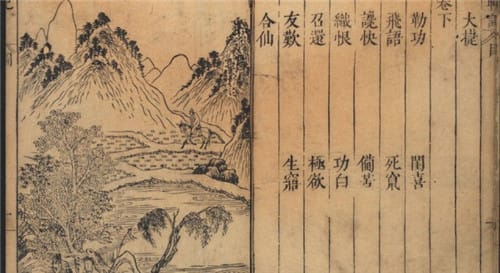 大捷
卷下
勒功 閨喜
飛語 死竄
讒快 備苦
織恨 功白
召還 極欲
友歎 生寤
合仙